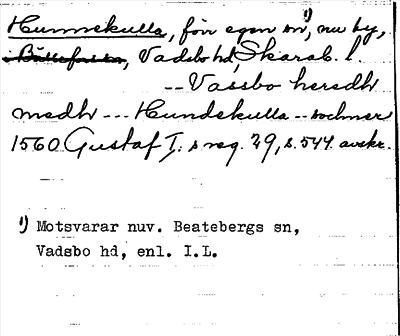 Hunnekulla, förr egen sn¹), nu by,
i Bällefors sn, Vadsbo hd, Skarab. l.
-- Vassbo heredh
medh --- Hundekulla -- sochner
1560 Gustaf I:s reg. 29, s. 544. avskr.
1) Motsvarar nuv. Beatebergs sn,
Vadsbo hd, enl. I.L.